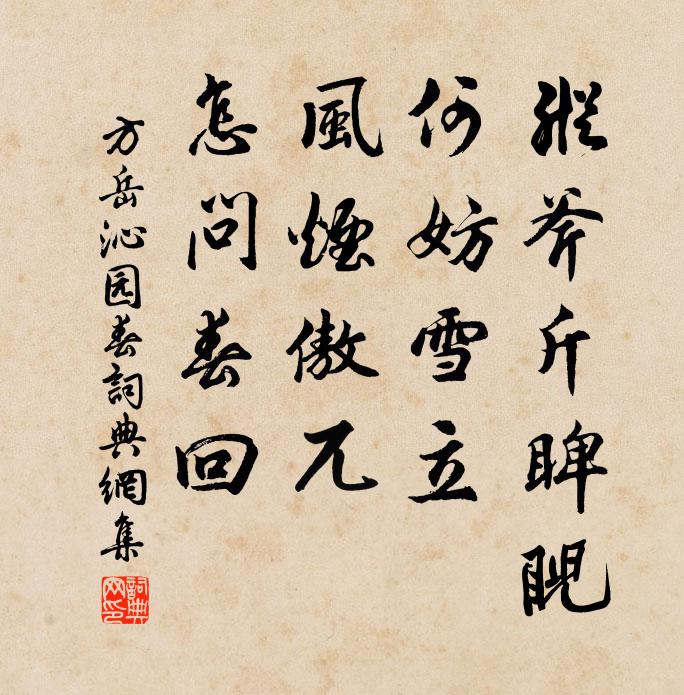 縱斧斤睥睨
何妨雪立
風煙傲兀
怎問春回
方岳沁园春詞典網集
詞典网印